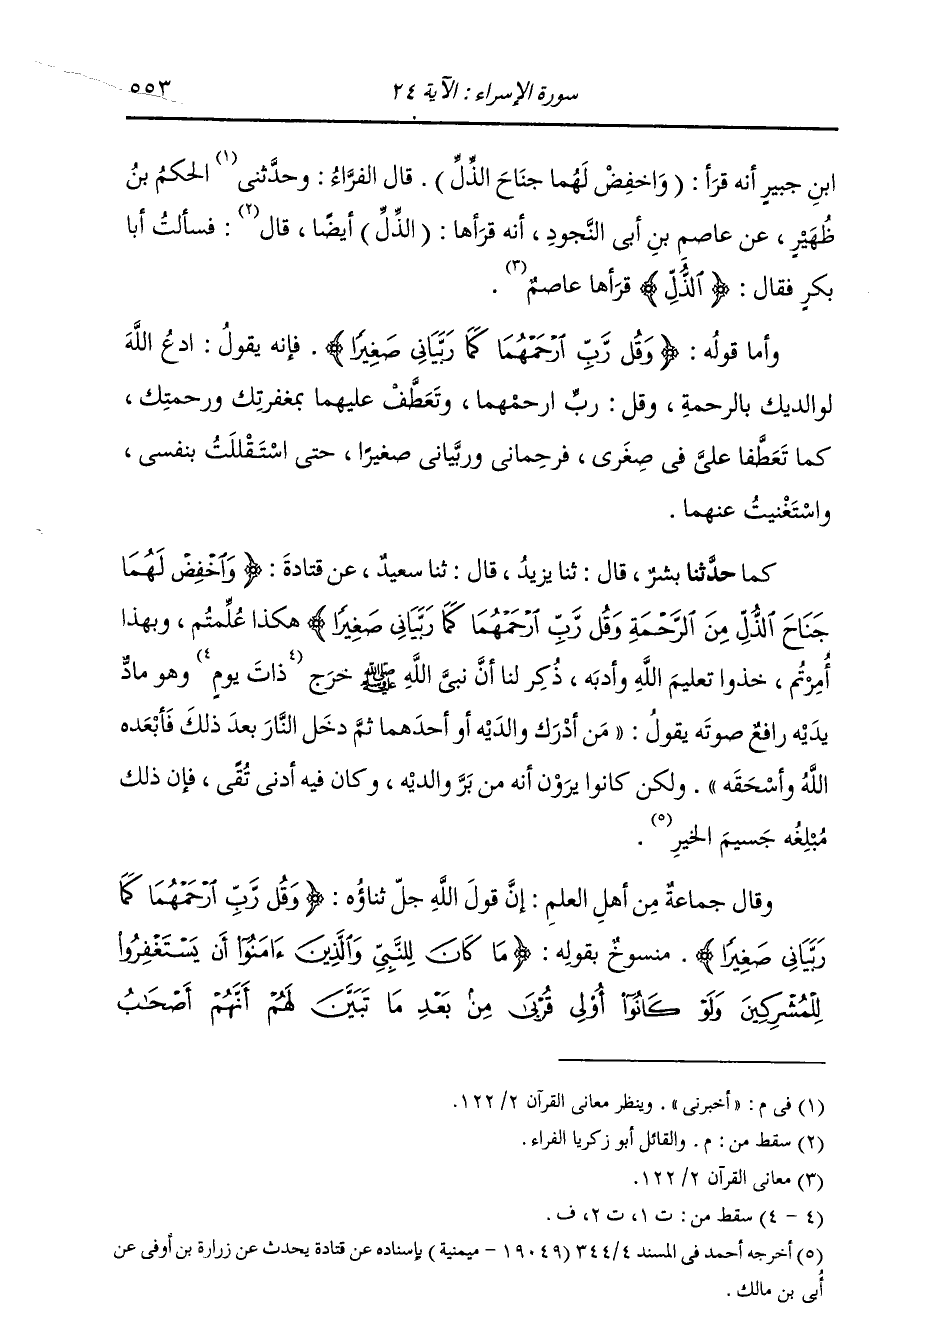 سورة الإسراء : الآية ٢٤
٥٥٣
ابنِ جبيرٍ أنه قرَأ : ( وَاخفِضْ لَهُما جناحَ الذِّلِّ ) . قال الفرَّاءُ : وحدَّثنى(١) الحكمُ بنُ
ظُهَيْرٍ ، عن عاصمِ بنِ أبى النَّجودِ ، أنه قرَأها : ( الذِّلِّ ) أيضًا ، قال(٢) : فسألتُ أبا
بكرٍ فقال : ﴿ ٱلذُّلِّ ﴾ قرَأها عاصمٌ(٣) .
وأما قولُه : ﴿ وَقُل رَّبِّ ٱرْحَمْهُمَا كَمَا رَبَّيَانِى صَغِيرًا ﴾ . فإنه يقولُ : ادعُ اللَّهَ
لوالديك بالرحمةِ ، وقل : ربِّ ارحمْهما ، وتَعَطَّفْ عليهما بمغفرتِك ورحمتِك ،
كما تَعَطَّفا علىَّ فى صِغَرى ، فرحِمانى وربَّيانى صغيرًا ، حتى اسْتَقْللَتُ بنفسى ،
واسْتَغْنيتُ عنهما .
كما حدَّثنا بشرٌ ، قال : ثنا يزيدُ ، قال : ثنا سعيدٌ ، عن قتادةَ : ﴿ وَٱخْفِضْ لَهُمَا
جَنَاحَ ٱلذُّلِّ مِنَ ٱلرَّحْمَةِ وَقُل رَّبِّ ٱرْحَمْهُمَا كَمَا رَبَّيَانِى صَغِيرًا ﴾ هكذا عُلِّمتُم ، وبهذا
أُمِرْتُم ، خذوا تعليمَ اللَّهِ وأدبَه ، ذُكِر لنا أنَّ نبىَّ اللَّهِ ﷺ خرَج (٤ذاتَ يومٍ٤) وهو مادٌّ
يدَيْه رافعٌ صوتَه يقولُ : « مَن أدْرَك والدَيْه أو أحدَهما ثمَّ دخَل النَّارَ بعدَ ذلكَ فَأبْعَده
اللَّهُ وأسْحَقَه » . ولكن كانوا يرَوْن أنه من بَرَّ والديْه ، وكان فيه أدنى تُقًى ، فإن ذلك
مُبْلِغُه جَسيمَ الخيرِ(٥) .
وقال جماعةٌ مِن أهلِ العلمِ : إنَّ قولَ اللَّهِ جلّ ثناؤُه : ﴿ وَقُل رَّبِّ ٱرْحَمْهُمَا كَمَا
رَبَّيَانِى صَغِيرًا ﴾ . منسوخٌ بقولِه : ﴿ مَا كَانَ لِلنَّبِىِّ وَٱلَّذِينَ ءَامَنُوٓا۟ أَن يَسْتَغْفِرُوا۟
لِلْمُشْرِكِينَ وَلَوْ كَانُوٓا۟ أُو۟لِى قُرْبَىٰ مِنۢ بَعْدِ مَا تَبَيَّنَ لَهُمْ أَنَّهُمْ أَصْحَٰبُ
(١) فى م : « أخبرنى » . وينظر معانى القرآن ٢/ ١٢٢.
(٢) سقط من : م . والقائل أبو زكريا الفراء .
(٣) معانى القرآن ٢/ ١٢٢.
(٤ - ٤) سقط من : ت ١، ت ٢، ف .
(٥) أخرجه أحمد فى المسند ٣٤٤/٤ (١٩٠٤٩ - ميمنية ) بإسناده عن قتادة يحدث عن زرارة بن أوفى عن
أُبى بن مالك .